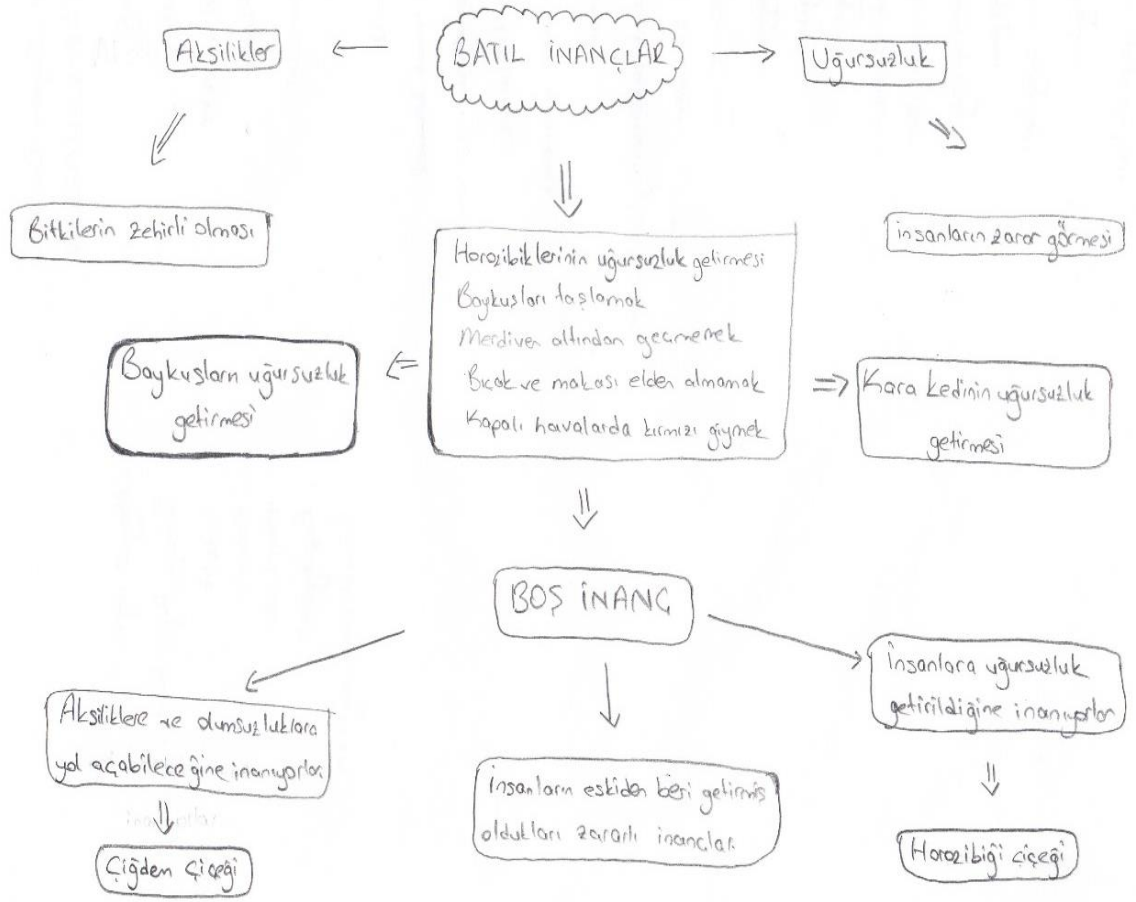 BATIL İNANÇLAR
Aksilikler
Uğursuzluk
Bitkilerin zehirli olması
insanların zarar görmesi
Horozibiklerinin uğursuzluk getirmesi
Baykuşları taşlamak
Merdiven altından geçmemek
Bıçak ve makası elden almamak
Kapalı havalarda kırmızı giymek
Baykuşların uğursuzluk
getirmesi
Kara kedinin uğursuzluk
getirmesi
BOŞ İNANÇ
Aksiliklere ve olumsuzluklara
yol açabileceğine inanıyorlar.
Çiğdem Çiçeği
İnsanların eskiden beri getirmiş
oldukları zararlı inançlar.
İnsanlara uğursuzluk
getirildiğine inanıyorlar
Horozibiği çiçeği